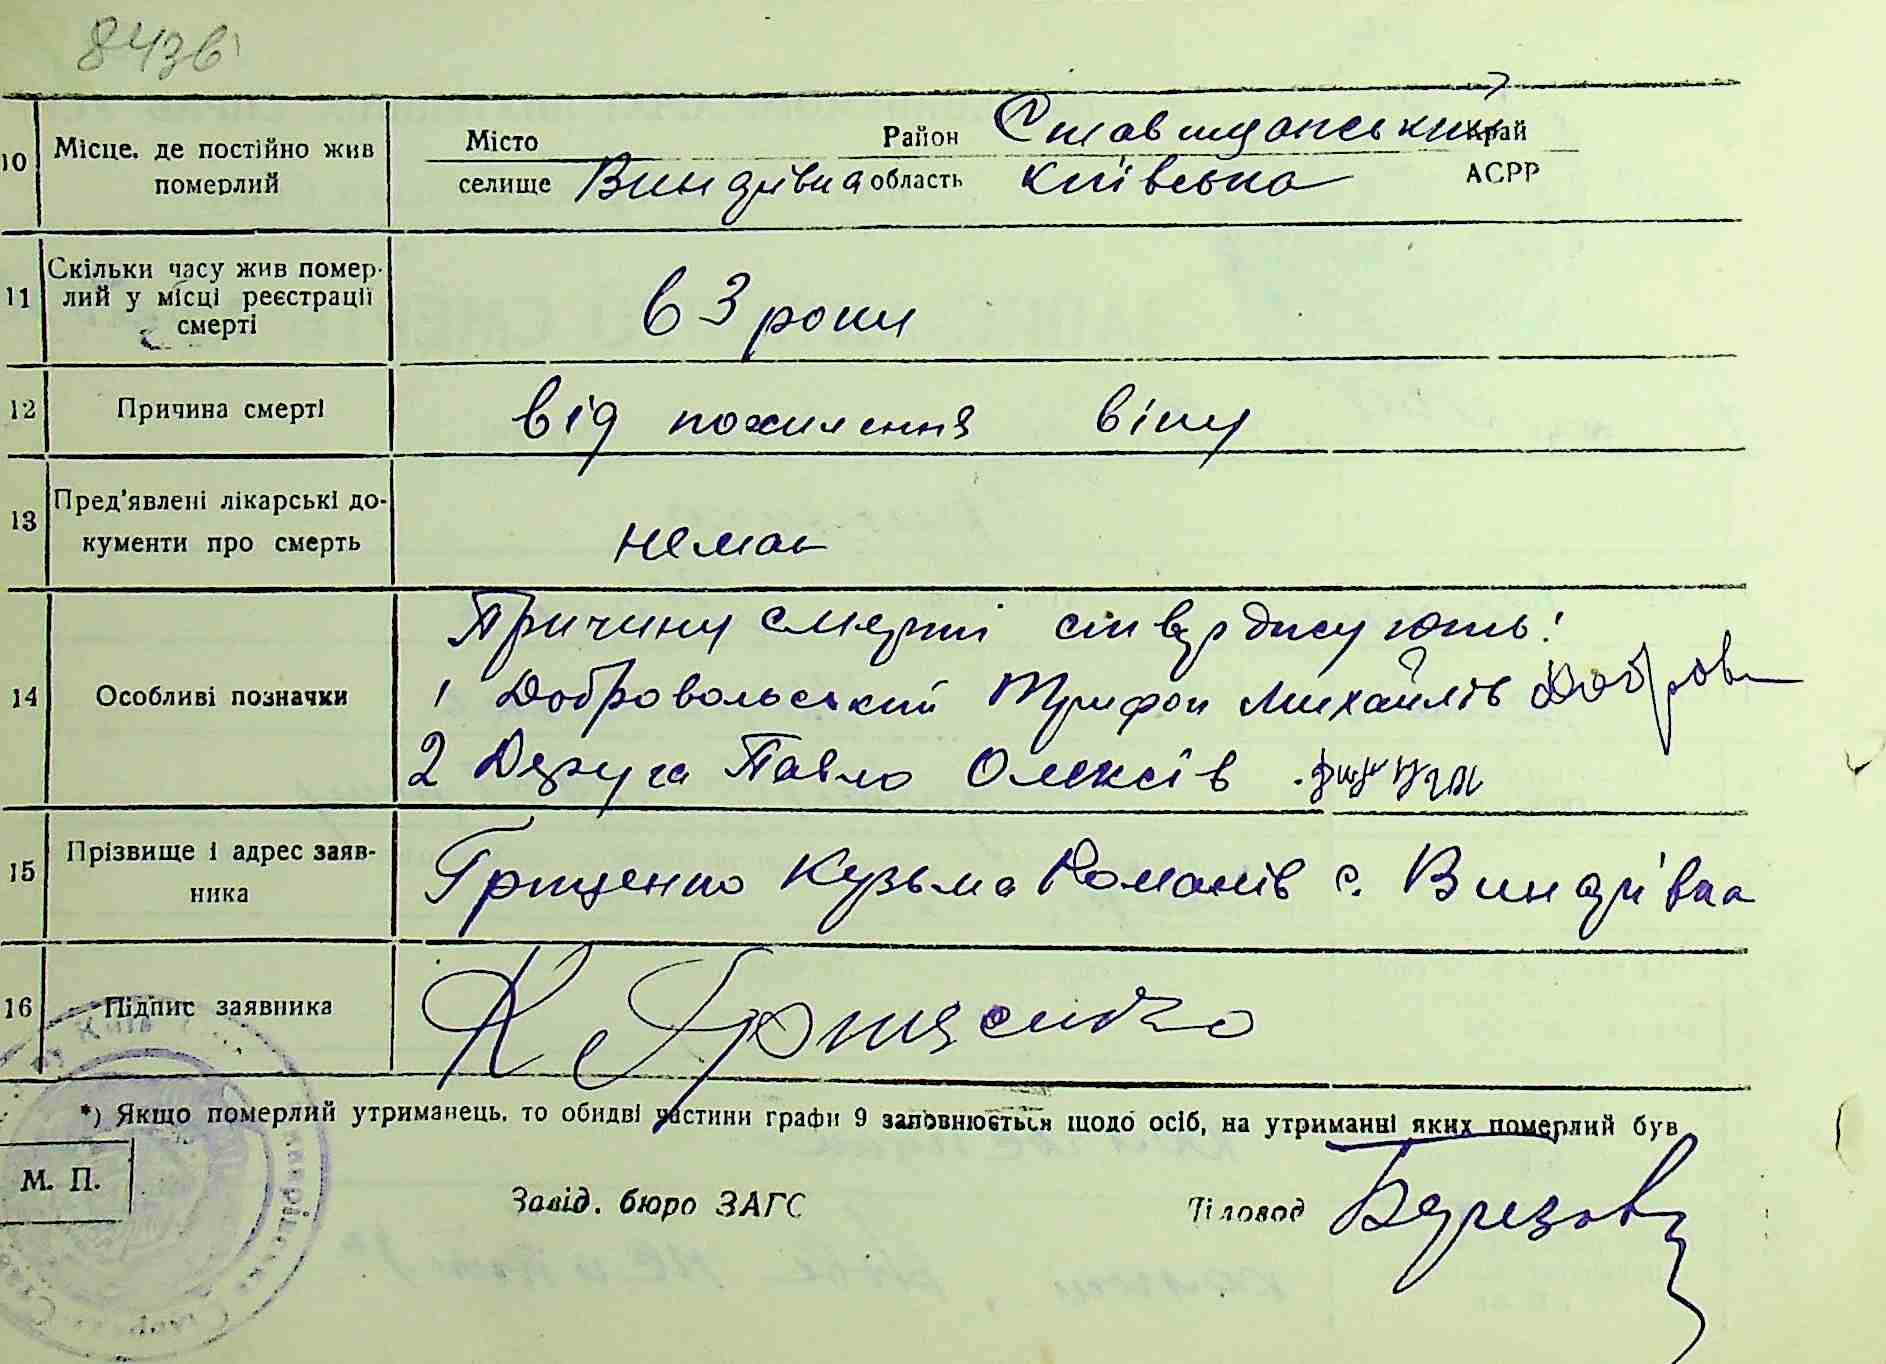 843б
10 Місце, де постійно жив померлий
Місто Район Ставищанський Край
селище Виндрівка область Київська АСРР
11 Скільки часу жив помер-
лий у місці реєстрації
смерті
63 роки
12 Причина смерті від похилення віку
13 Пред'явлені лікарські до-
кументи про смерть
немає
14 Особливі позначки
Причину смерті стверджують:
1 Добровольський Трифон Михайлів Добров
2 Дзюга Павло Олексів
15 Прізвище і адрес заяв-
ника
Грищенко Кузьма Романів с. Виндрівка
16 Підпис заявника К Грищенко
*) Якщо померлий утриманець, то обидві частини графи 9 заповнюється щодо осіб, на утриманні яких померлий був
М. П.
Завід. бюро ЗАГС Діловод